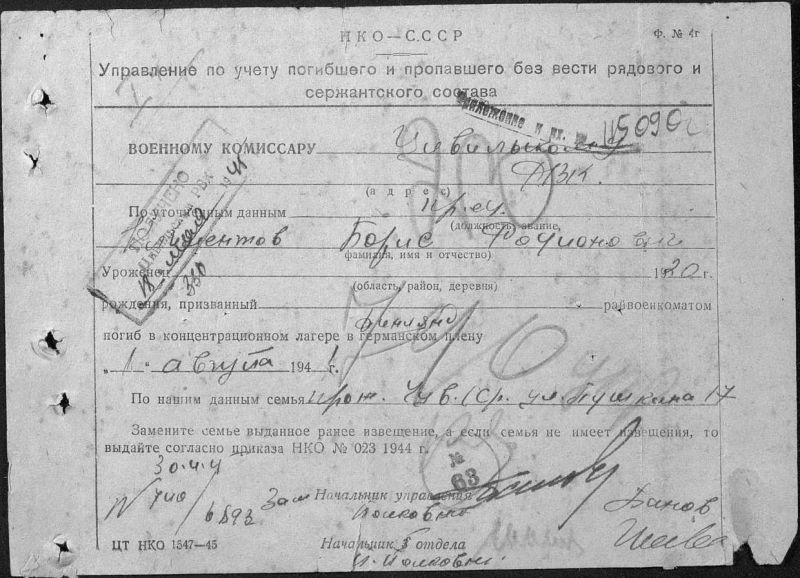 НКО—СССР
Ф. № 4г
Управление по учету погибшего и пропавшего без вести рядового и
сержантского состава
Приложение к вх. №
15090
ВОЕННОМУ КОМИССАРУ Цивильскому
РВК.
(адрес)
ПОЛУЧЕНО
Цивильский РВК
18 1945
350
По уточненным данным
(должность, звание,
Борис Родионович
фамилия, имя и отчество)
Уроженец 1920 г.
(область, район, деревня)
рождения, призванный райвоенкоматом
погиб в концентрационном лагере в германском плену
"1" августа 1941 г.
По нашим данным семья прож. Чув. ул. Пушкина 17
Замените семье выданное ранее извещение, а если семья не имеет извещения, то
выдайте согласно приказа НКО № 023 1944 г.
№
63
Зам Начальник управления
Полковник
Начальник 3 отдела
П. Полковник
ЦТ НКО 1547—45